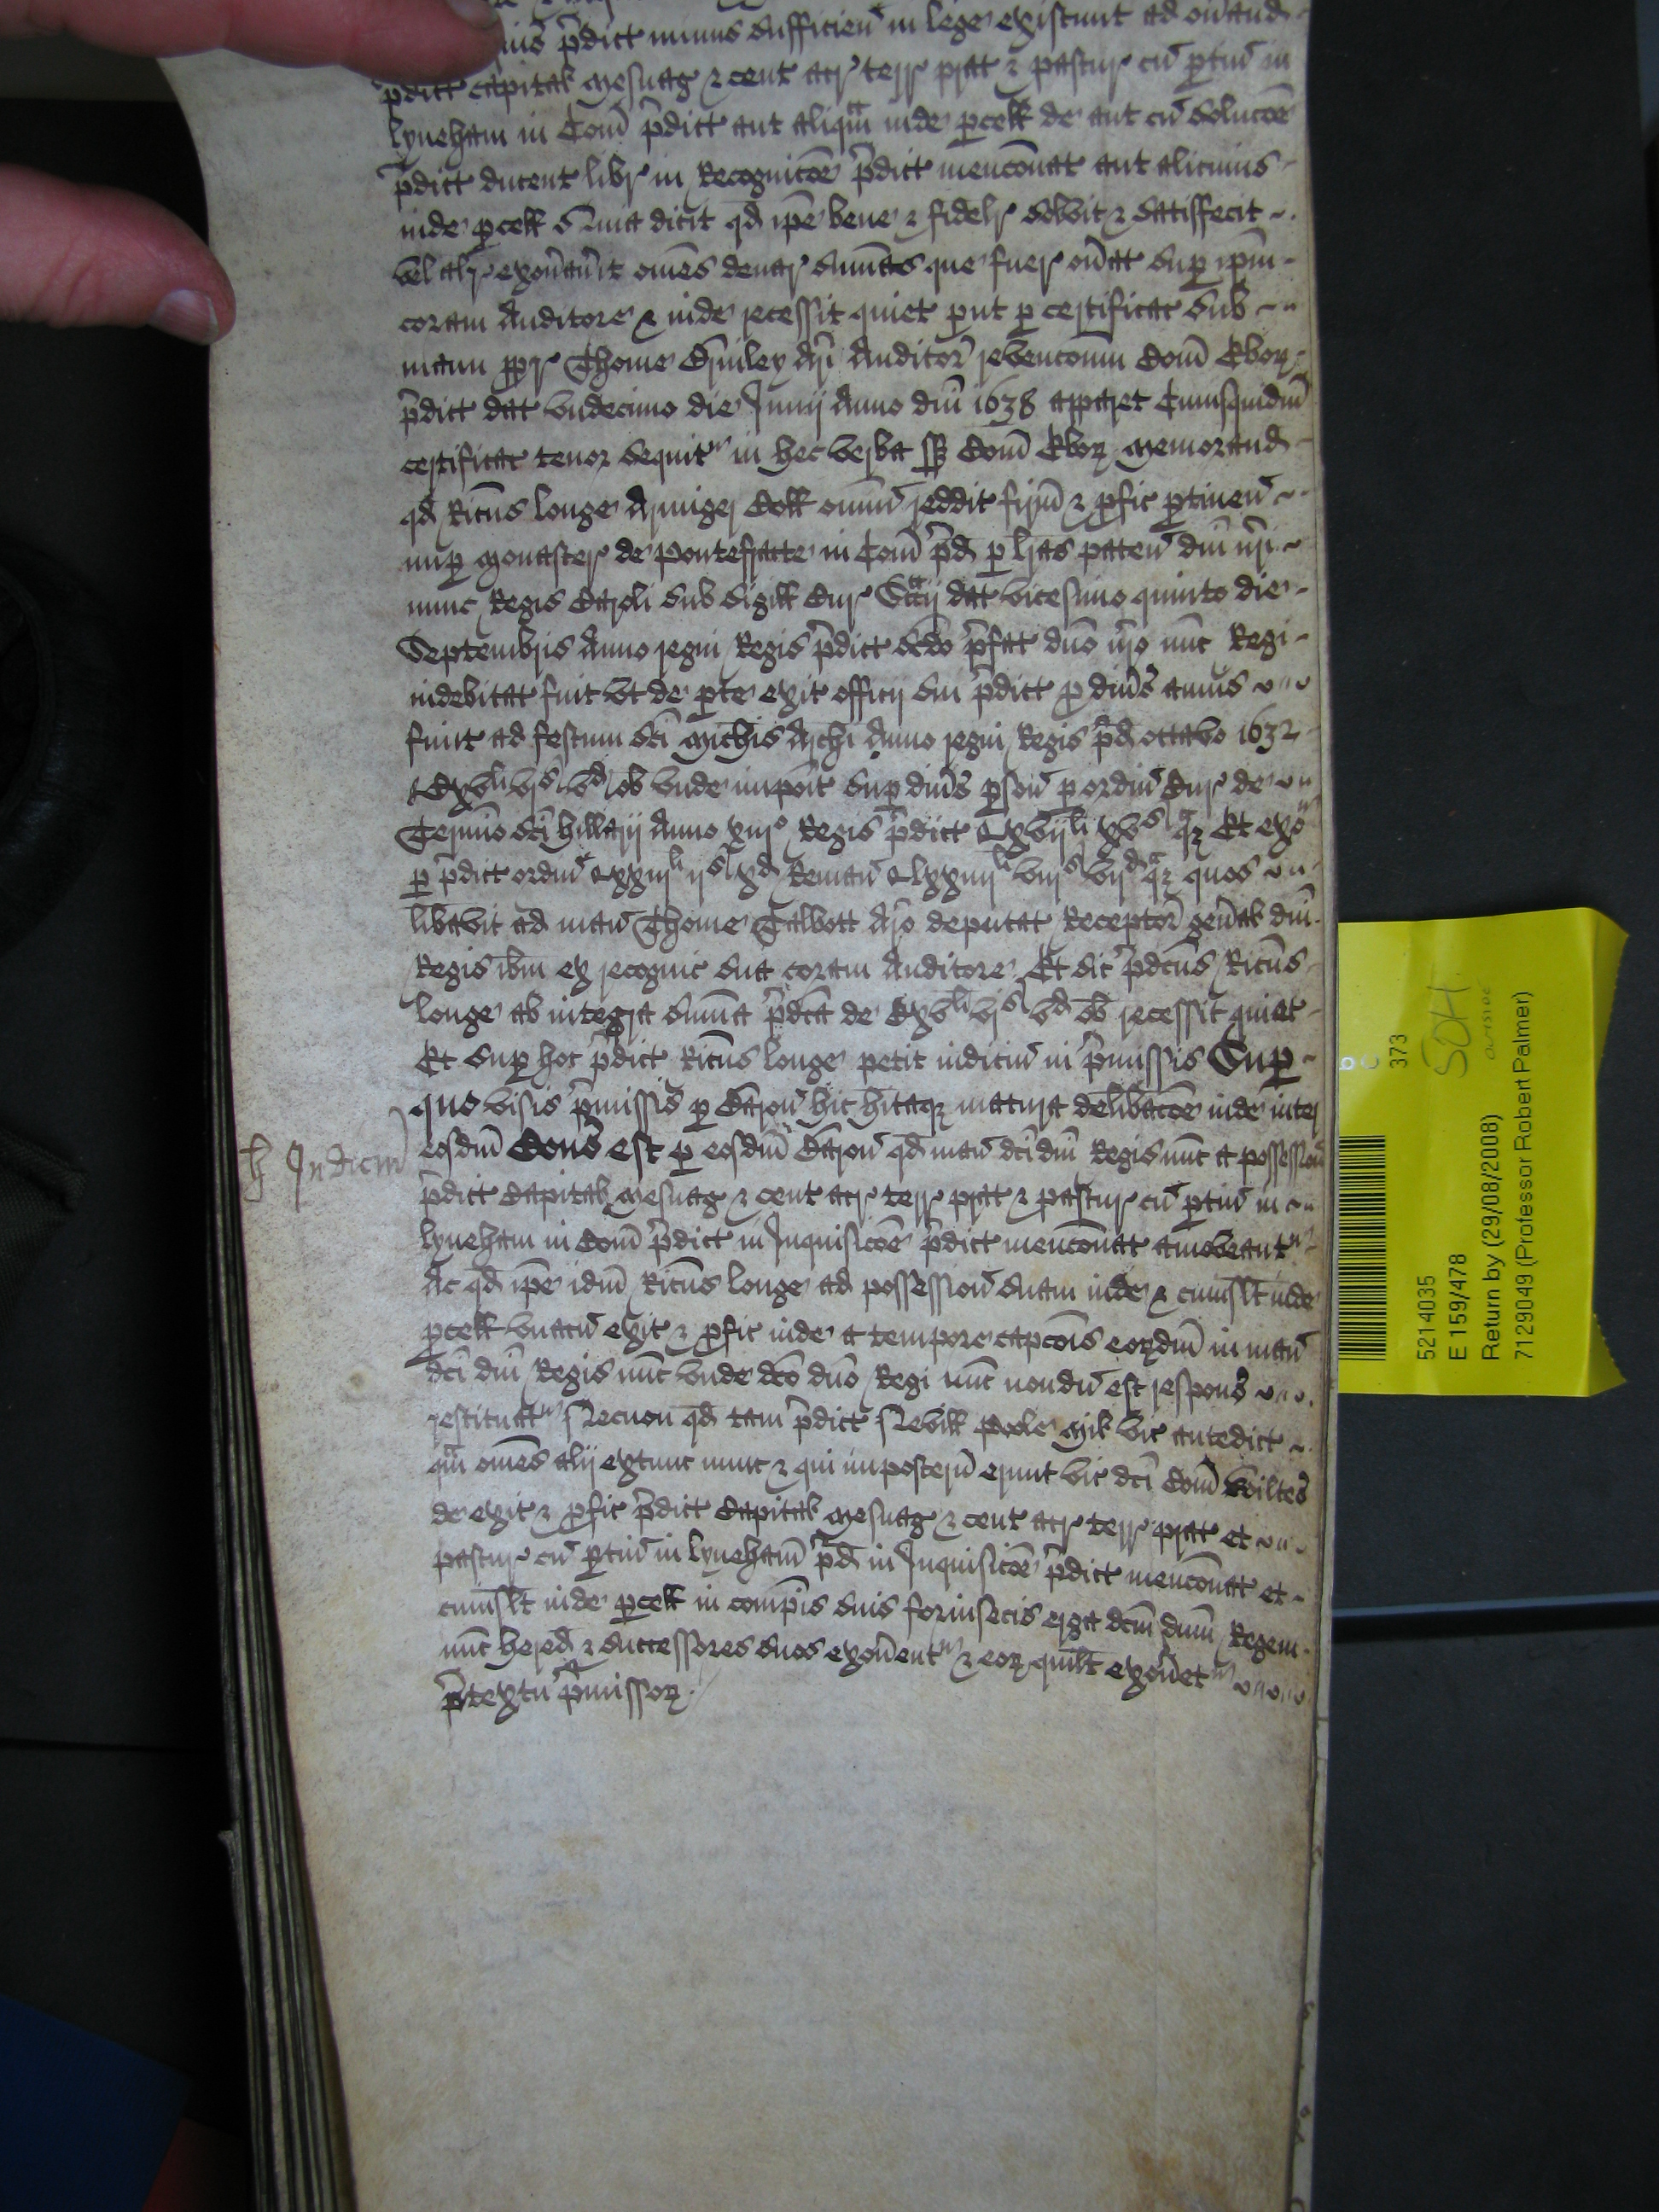 p̄dict minus sufficien̄ in lege existunt ad on̄and
p̄dict capitał Mesuag & cent acr terr prat & pastur cu ptin̄ in
Lyneham in Com̄ p̄dict aut aliquam inde pcell de aut cu soluc̄oe
p̄dict ducent libr in Recognic̄oe p̄dict menc̄onat aut alicuius
inde pcell Summa dicit qd ip̄e bene & fidelr solvit & satisfecit
vel alr exon̄avit om̄es denar summas que fuer on̄at sup ip̄m
coram Auditore & inde recessit quiet put p certificac sub
manu ppr Thome Ar̄i Auditor̄ revencionu Com̄ Eboꝝ
p̄dict dat undecimo die Junij Anno dn̄i 1638 apparet Cuiusquidm̄
certificac tenor sequit in hec verba ss Com̄ Eboꝝ Memorand
qd Ric̄us Longe Armiger Coll omniu reddit firm̄ & pfic ptinen̄
nup Monaster de Pontefracte in Com̄ p̄d p lr̄as paten̄ dn̄i nr̄i
nunc Regis Caroli sub sigill Cur Scaccij dat vicesimo quinto die
Septembris Anno regni Regis p̄dict sc̄do p̄fat dn̄o nr̄o nūc Regi
indebitat fuit ut de pte exit officij sui p̄dict p div̄s annis
finit ad festum sc̄i Mich̄is Arch̄i Anno regni Regis p̄d octavo 1632
Cxvli vjs vd ob unde impoit sup div̄s pson̄ p ordin̄ Cur de
Termīo sc̄i Hillarij Anno xiijo Regis p̄dict xvs qꝫ Et exon
p p̄dict ordin̄ ijs xd Reman̄ viijs vijd qꝫ quos
lib̄avit ad man̄ Thome Talbott Ar̄o deputat Receptor̄ gen̄al dn̄i
Regis ib̄m ex recognic sua coram Auditore Et sic p̄dc̄us Ric̄us
Longe ab integra summa p̄dc̄a de Cxvli vjs vd ob recessit quiet
Et sup hoc p̄dict Ric̄us Longe petit iudiciu in p̄missis Sup
quo visis p̄missis p Baron̄ hic h̄itaqꝫ matura delib̄ac̄oe inde inter
Judiciu
eosdm̄ Cons̄ est p eosdm̄ Baron̄ qd man̄ dc̄i dn̄i Regis nūc a possession̄
p̄dict Capital Mesuag & cent acr terr prat & pastur cu ptin̄ in
Lyneham in Com̄ p̄dict in Inquisic̄oe p̄dict menc̄onat amoveant
Ac qd ip̄e idm̄ Ric̄us Longe ad possession̄ suam inde & cuiusl̄t inde
pcell unacu exit & pfic inde a tempore capc̄ois eoꝝdm̄ in man̄
dc̄i dn̄i Regis nūc unde dc̄o dn̄o Regi nūc nondu est respons̄
restituat Necnon qd tam p̄dict Nevill Poole Mil vic antedict
qm̄ om̄es alij extunc nunc & qui imposteru erunt vic dc̄i Com̄ Wiltes̄
de exit & pfic p̄dict Capital Mesuag & cent acr terr prat et
pastur cu ptin̄ in Lyneham̄ p̄d in Inquisic̄oe p̄dict menc̄onat et
cuiusl̄t inde pcell in comp̄is suis forinsecis erga dc̄m dn̄m Regem
nūc hered & successores suos exon̄ent & eoꝝ quil̄t exon̄et
p̄textu p̄missoꝝ
373
5214035
E 159/478
Return by (29/08/2008)
7129049 (Professor Robert Palmer)